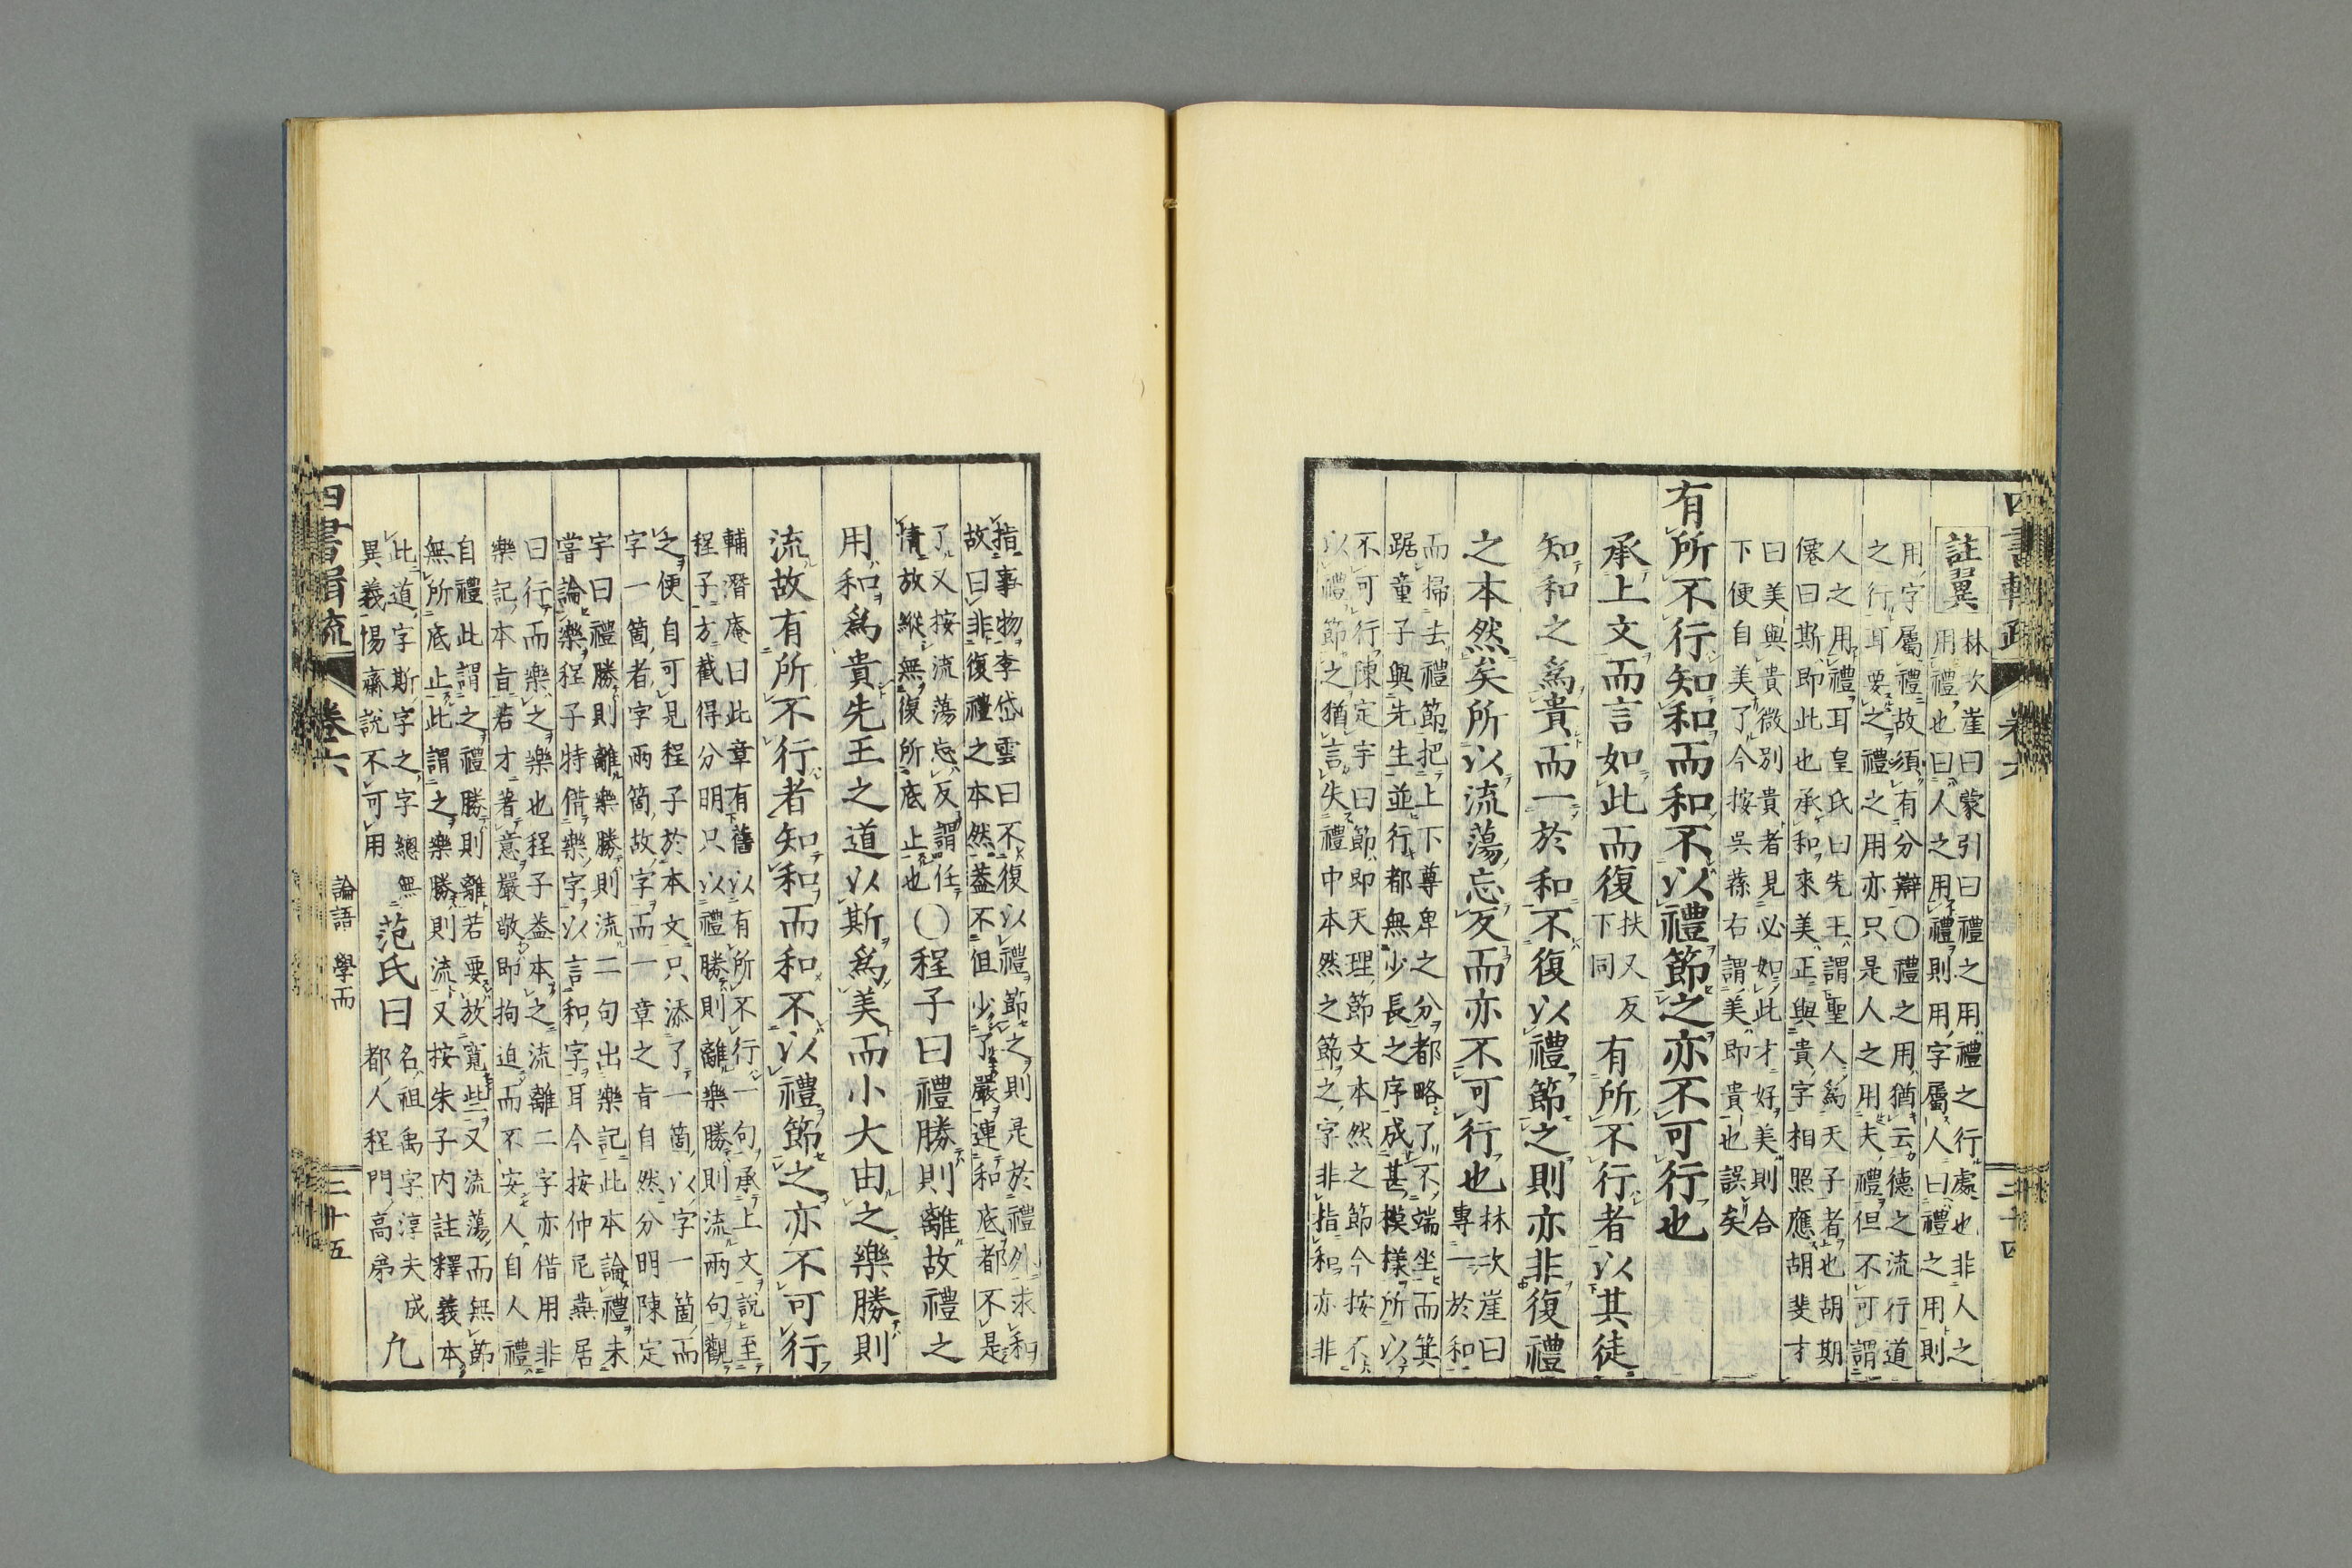 四書輯疏
卷六
二十四
註翼
林次崖曰蒙引曰禮之用禮之行處也非人之
用禮也曰人之用禮則用字屬人曰禮之用則
用字屬禮故須有分辯〇禮之用猶云德之流行道
之行耳要之禮之用亦只是人之用夫禮但不可謂
人之用禮耳皇氏曰先王謂聖人爲天子者也胡期
僊曰斯即此也承和來美正與貴字相照應胡斐才
曰美與貴微別貴者見必如此才好美則合
下便自美了今按吳蓀右謂美即貴也誤矣
有所不行知和而和不以禮節之亦不可行也
承上文而言如此而復
扶又反
下同
有所不行者以其徒
知和之爲貴而一於和不復以禮節之則亦非復禮
之本然矣所以流蕩忘反而亦不可行也
林次崖曰
專一於和
而掃去禮節把上下尊卑之分都略了不端坐而箕
踞童子與先生並行都無少長之序成甚模樣所以
不可行陳定宇曰節即天理節文本然之節今按不
以禮節之猶言失禮中本然之節之字非指和亦非
指事物李岱雲曰不復以禮節之則是於禮外求和
故曰非復禮之本然蓋不但少了嚴連和底都不是
了又按流蕩忘反謂任
情放縱無復所底止也
〇程子曰禮勝則離故禮之
用和爲貴先王之道以斯爲美而小大由之樂勝則
流故有所不行者知和而和不以禮節之亦不可行
輔潛庵曰此章有舊以有所不行一句承上文說至
程子方截得分明只以禮勝則離樂勝則流兩句觀
之便自可見程子於本文只添了一箇以字一箇而
字一箇者字兩箇故字而一章之旨自然分明陳定
宇曰禮勝則離樂勝則流二句出樂記此本論禮未
嘗論樂程子特借樂字以言和字耳今按仲尼燕居
曰行而樂之樂也程子蓋本之流離二字亦借用非
樂記本旨若才著意嚴敬即拘迫而不安人自人禮
自禮此謂之禮勝則離若要放寬些又流蕩而無節
無所底止此謂之樂勝則流又按朱子内註釋義本
此道字斯字之字總無
異義惕齋說不可用
范氏曰
名祖禹字淳夫成
都人程門高弟
九
四書輯疏
卷六
論語 學而
二十五